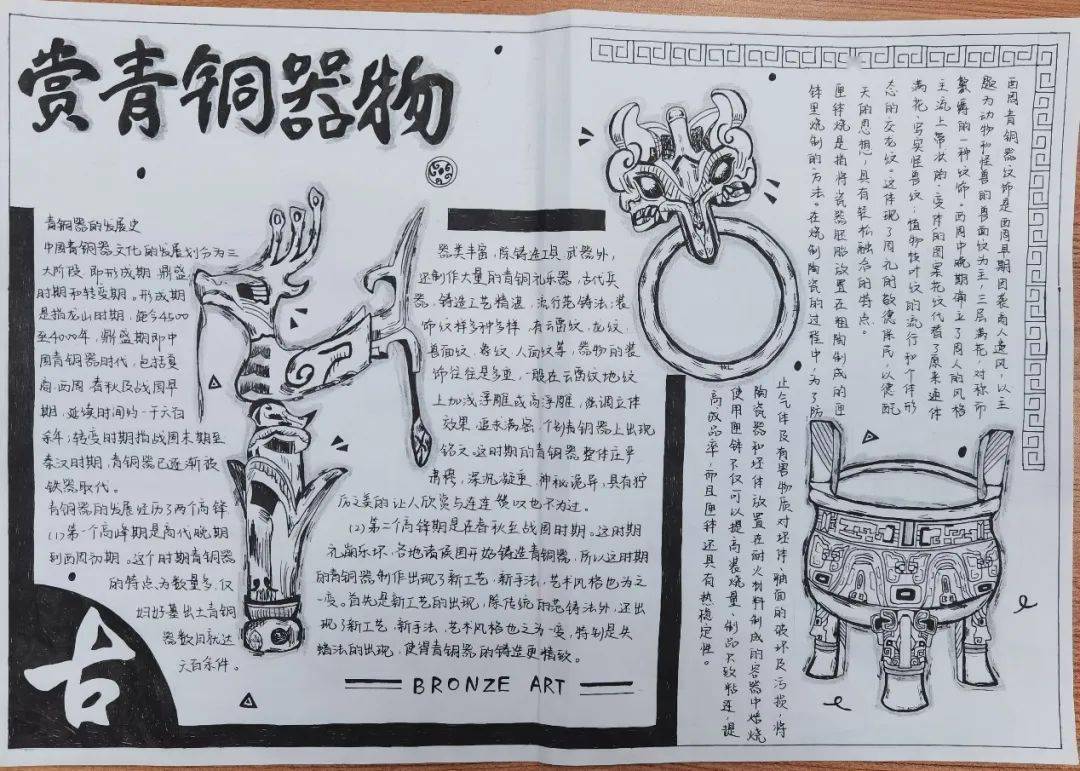 赏青铜器物
青铜器的发展史
中国青铜器文化的发展划分为三
大阶段,即形成期、鼎盛
时期和转变期。形成期
是指龙山时期,距今4500
至4000年,鼎盛期即中
国青铜器时代,包括夏
商、西周、春秋及战国早
期,延续时间约一千六百
余年;转变时期指战国末期至
秦汉时期,青铜器已逐渐被
铁器取代。
青铜器的发展经历了两个高锋
(1)第一个高峰期是商代晚期
到西周初期。这个时期青铜器
的特点为数量多,仅
妇好墓出土青铜
器数目就达
六百余件。
古
器类丰富,除铸造工具、武器外,
还制作大量的青铜礼乐器,古代兵
器,铸造工艺精湛,流行范铸法;装
饰纹样多种多样,有云雷纹、龙纹、
兽面纹、象纹、人面纹等,器物的装
饰往往是多重,一般在云雷纹地纹
上加浅浮雕或高浮雕,强调立体
效果,追求满密,个别青铜器上出现
铭文。这时期的青铜器整体庄严
肃穆,深沉凝重,神秘诡异,具有狞
厉之美的让人欣赏与连连赞叹也不为过。
(2)第二个高锋期是在春秋至战国时期。这时期
礼崩乐坏,各地诸侯国开始铸造青铜器,所以这时期
的青铜器制作出现了新工艺,新手法,艺术风格也为之
一变。首先是新工艺的出现,除传统的范铸法外,还出
现了新工艺,新手法,艺术风格也之为一变,特别是失
蜡法的出现,使得青铜器的铸造更精致。
BRONZE ART
西周青铜器纹饰是西周早期因袭商人遗风,以主
题为动物和怪兽的兽面纹为主,三层满花,对称而
繁缛的一种纹饰。西周中晚期确立了周人的风格
主流上带状的,变体的图案花纹代替了原来通体
满花,写实怪兽纹,植物枝叶纹的流行和个体形
态的交龙纹。这体现了周礼的敬德保民,以德配
天的思想,具有轻松融洽的特点。
匣钵烧是指将瓷器胚胎放置在粗陶制成的匣
钵里烧制的方法。在烧制陶瓷的过程中,为了防
止气体及有害物质对坯体、釉面的破坏及污损,将
陶瓷器和坯体放置在耐火材料制成的容器中焙烧
使用匣钵不仅可以提高装烧量、制品不致粘连、提
高成品率,而且匣钵还具有热稳定性。